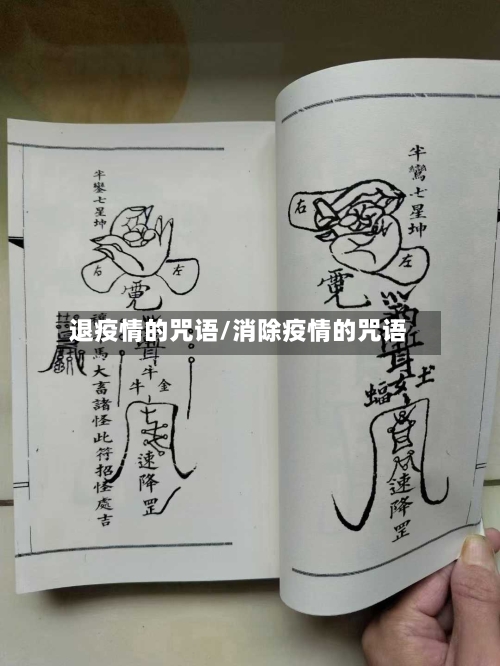 半鸞七星坤
右
左
霓
牛
牛 金
七
速降罡
馬大畜諸怪此符招怪處吉
退疫情的咒语/消除疫情的咒语
半鸞七星坤
右
左
霓
耳
蝠 女 土
速降罡